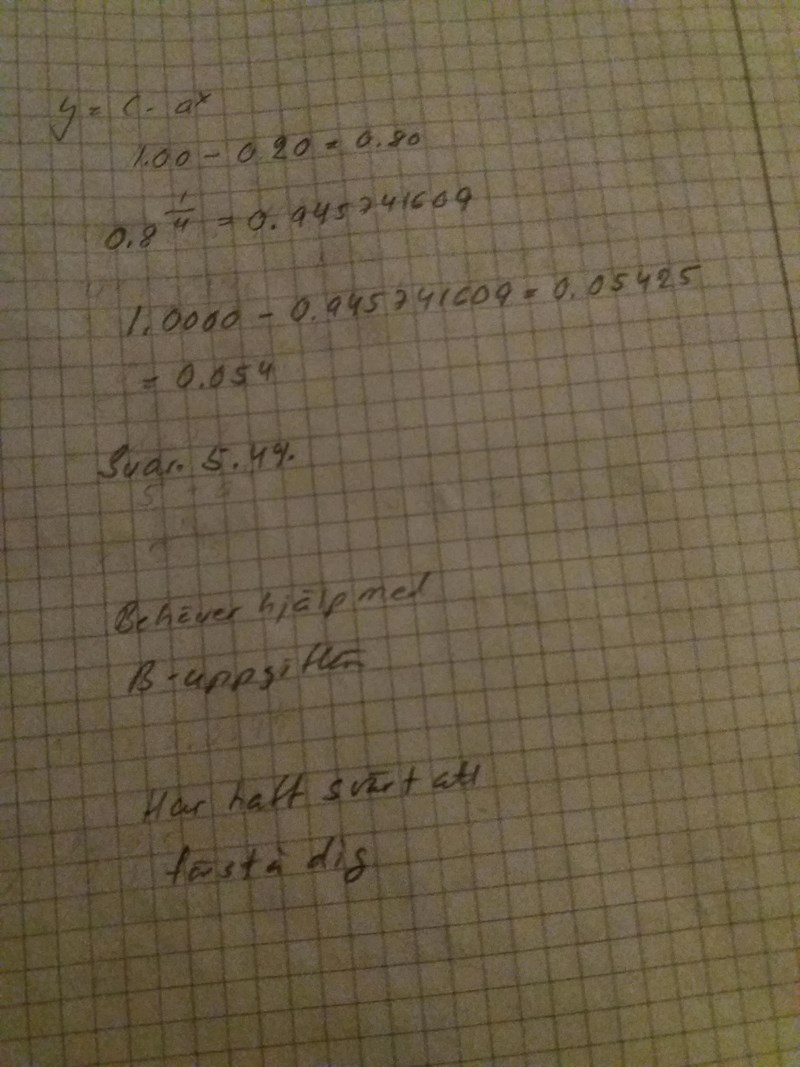 y = C · a^x
1.00 - 0.20 = 0.80
0.8^1/4 = 0.945741609
1.0000 - 0.945741609 = 0.05425
= 0.054
Svar. 5.4%.
Behöver hjälp med
B-uppgiften
Har haft svårt att
förstå dig